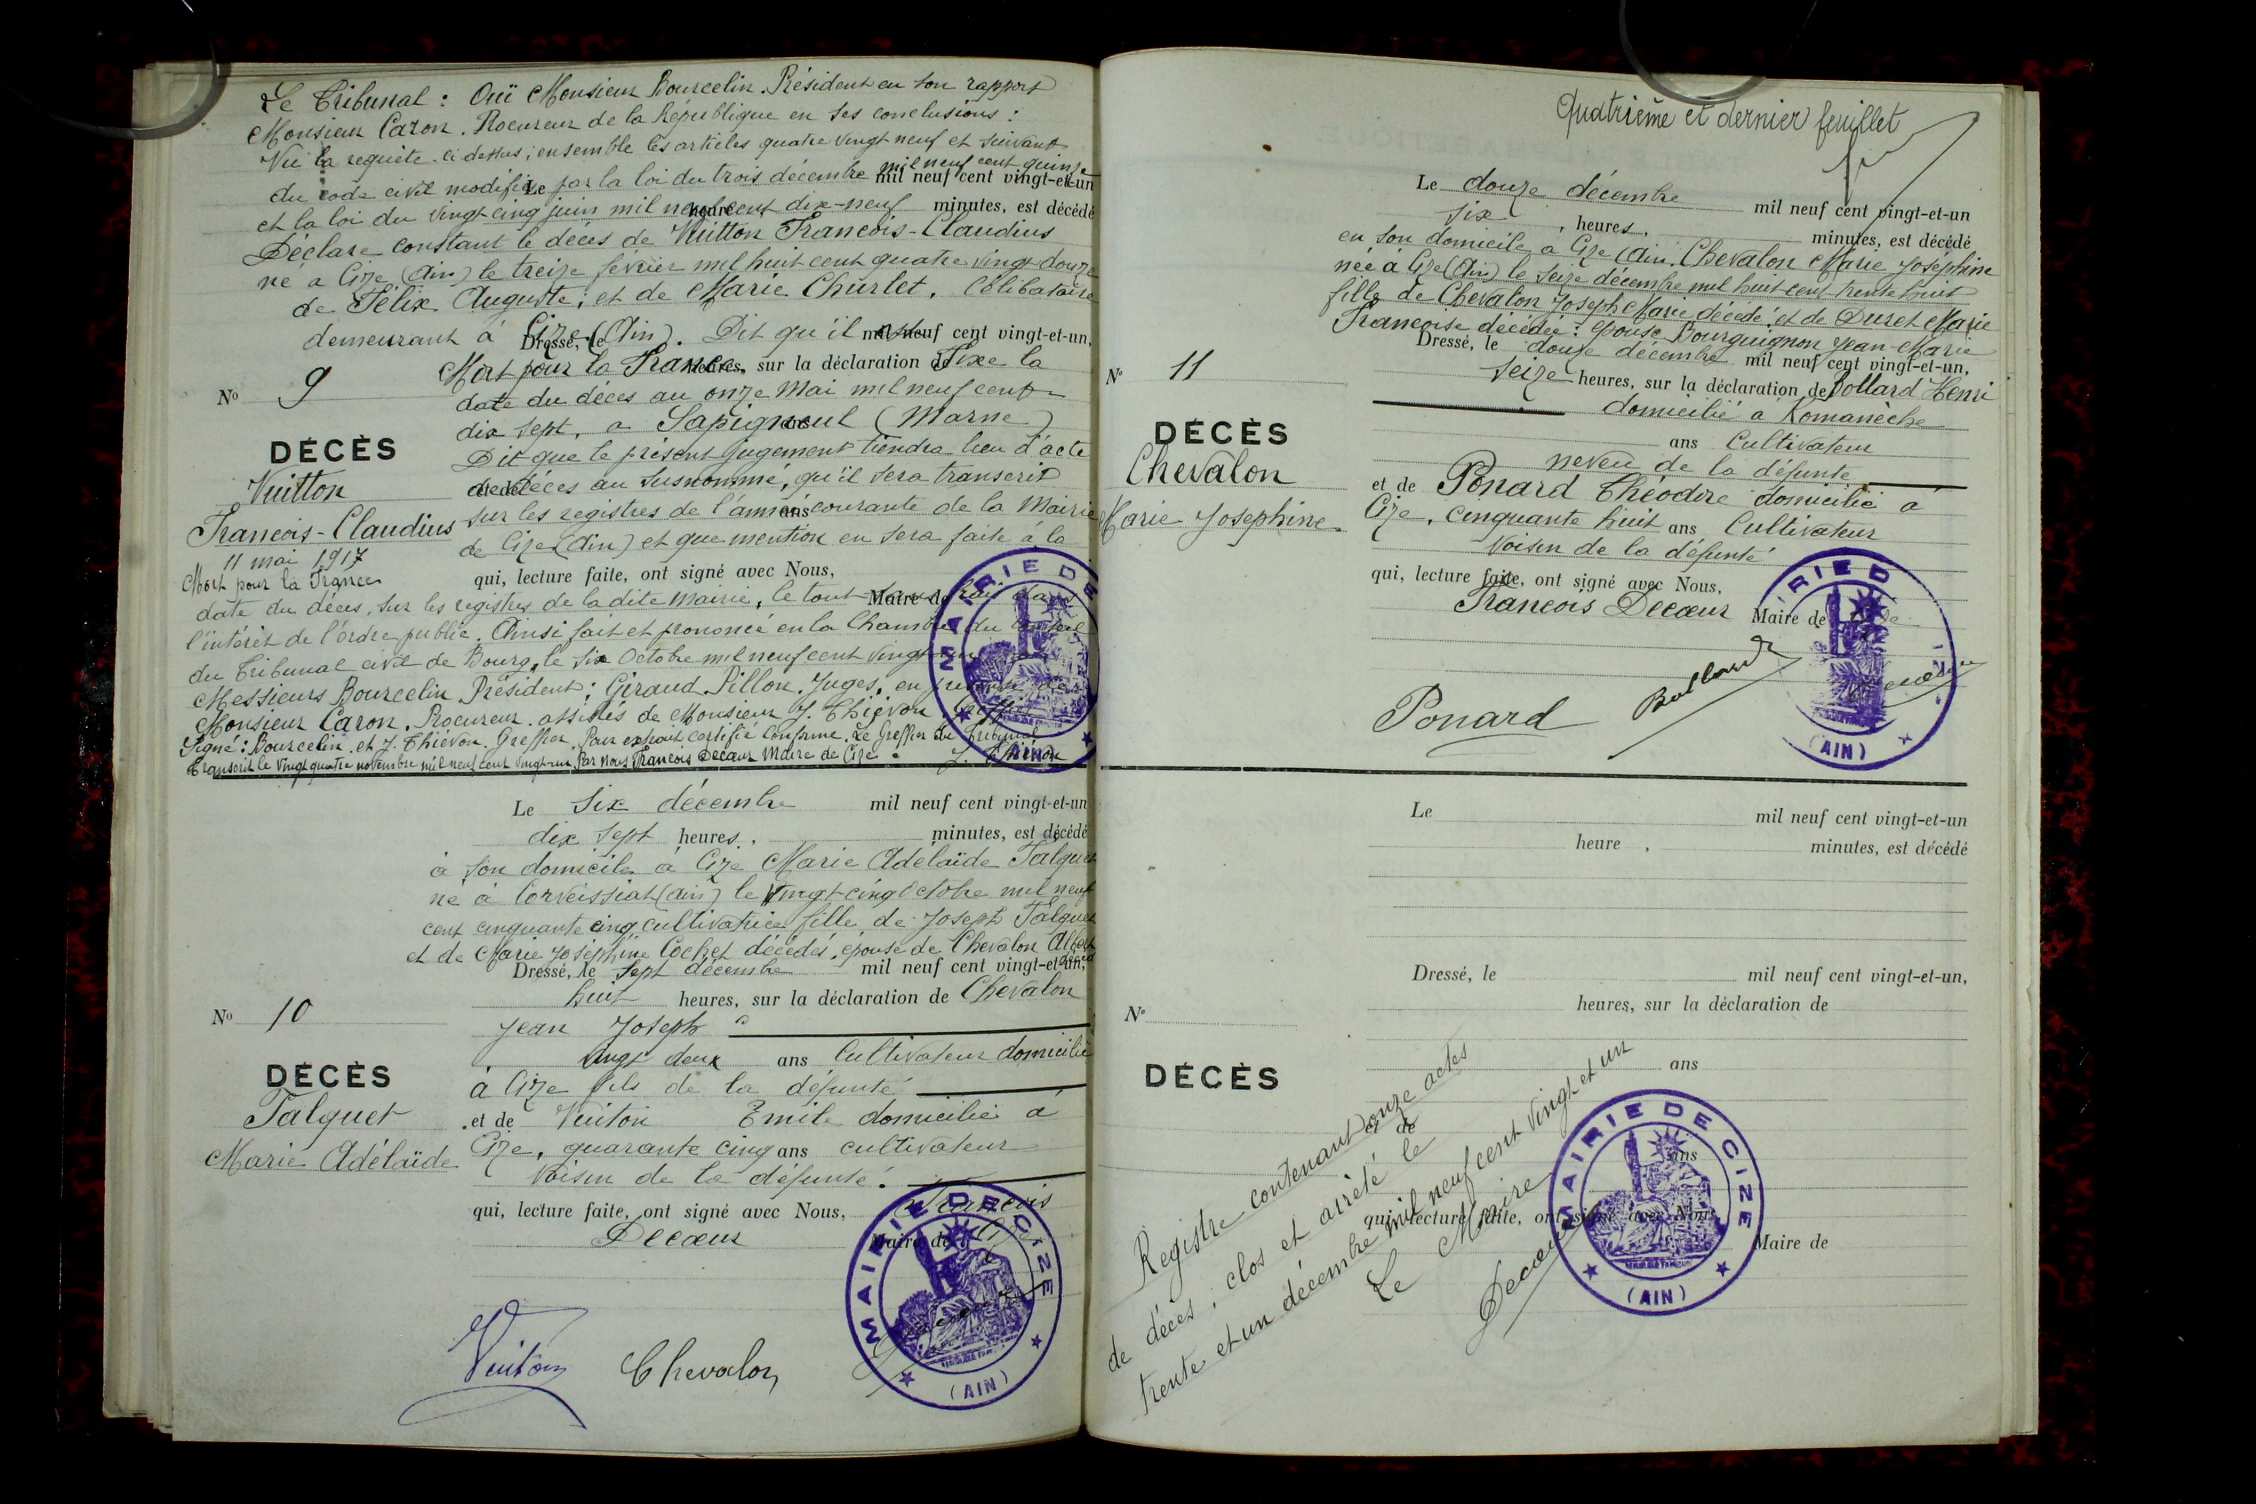 Le Tribunal : Ouï Monsieur Bourcelin. Président en son rapport
Monsieur Caron. Procureur de la République en ses conclusions :
Vu la requête ci dessus ; ensemble les articles quatre vingt neuf et suivant
mil neuf cent quinze
du code civil modifiés par la loi du trois décembre
Le mil neuf cent vingt-et-un
et la loi du vingt-cinq juin mil neuf cent dix-neuf
heure minutes, est décédé
Déclare constant le décès de Vuitton François-Claudius
né à Cize (Ain) le treize février mil huit cent quatre vingt douze
de Félix Auguste, et de Marie Churlet. Célibataire
demeurant à Cize (Ain). Dit qu'il est
Dressé, le mil neuf cent vingt-et-un,
Mort pour la France. Fixe la
heures, sur la déclaration de
No 9
date du décès au onze Mai mil neuf cent
dix sept, a Sapigneul (Marne)
DÉCÈS
Dit que le présent jugement tiendra lieu d'acte
Vuitton
de décès au susnommé, qu'il sera transcrit
et de
François-Claudius
sur les registres de l'année courante de la Mairie
ans
11 mai 1917
de Cize (Ain) et que mention en sera faite à la
Mort pour la France
qui, lecture faite, ont signé avec Nous,
date du décès, sur les registres de la dite Mairie, le tout sans frais dans
Maire de
l'intérêt de l'ordre public. Ainsi fait et prononcé en la Chambre du Conseil
du Tribunal civil de Bourg, le six Octobre mil neuf cent vingt
Messieurs Bourcelin, Président ; Giraud. Pillon. Juges, en
Monsieur Caron. Procureur. assistés de Monsieur J. Thiévon
Signé : Bourcelin et J. Thiévon. Greffier. Pour extrait certifié conforme. Le Greffier du Tribunal
Transcrit le vingt quatre novembre mil neuf cent vingt-un par nous François Decœur Maire de Cize. J. Thiévon
MAIRIE DE
(AIN)
Le six décembre mil neuf cent vingt-et-un
dix sept heures, minutes, est décédé
à son domicile à Cize Marie Adélaïde Talguet
né à Corveissiat (ain) le vingt-cinq octobre mil neuf
cent cinquante cinq cultivatrice fille de Joseph Talguet
et de Marie Joséphine Cochet décédés, épouse de Chevalon Albert
décédé
Dressé, le sept décembre mil neuf cent vingt-et-un,
huit heures, sur la déclaration de Chevalon
No 10
Jean Joseph
vingt deux ans Cultivateur domicilié
DÉCÈS
à Cize fils de la défunte
Talguet
et de Vuiton Emile domicilié à
Marie Adélaïde
Cize, quarante cinq ans cultivateur
Voisin de la défunte.
qui, lecture faite, ont signé avec Nous, François
Decœur Maire de
Vuiton Chevalon
MAIRIE DE CIZE
(AIN)
Quatrième et dernier feuillet
Le douze décembre mil neuf cent vingt-et-un
six heures, minutes, est décédé
en son domicile à Cize (Ain. Chevalon Marie Joséphine
née à Cize (Ain) le seize décembre mil huit cent trente huit
fille de Chevalon Joseph Marie décédé et de Duret Marie
Françoise décédée : épouse Bourguignon Jean-Marie
Dressé, le douze décembre mil neuf cent vingt-et-un,
No 11
seize heures, sur la déclaration de Bollard Henri
domicilié a Romanèche
DÉCÈS
ans Cultivateur
Chevalon
neveu de la défunte
Marie Josephine
et de Ponard Théodore domicilié à
Cize, cinquante huit ans Cultivateur
Voisin de la défunte
qui, lecture faite, ont signé avec Nous,
François Decœur Maire de
Ponard
MAIRIE D
(AIN)
Le mil neuf cent vingt-et-un
heure , minutes, est décédé
Dressé, le mil neuf cent vingt-et-un,
heures, sur la déclaration de
No
DÉCÈS
ans
et de
ans
qui, lecture faite, ont signé avec Nous,
Maire de
Registre contenant onze actes
de décès, clos et arrêté le
trente et un décembre mil neuf cent vingt et un
Le Maire
Decœur
MAIRIE DE CIZE
(AIN)